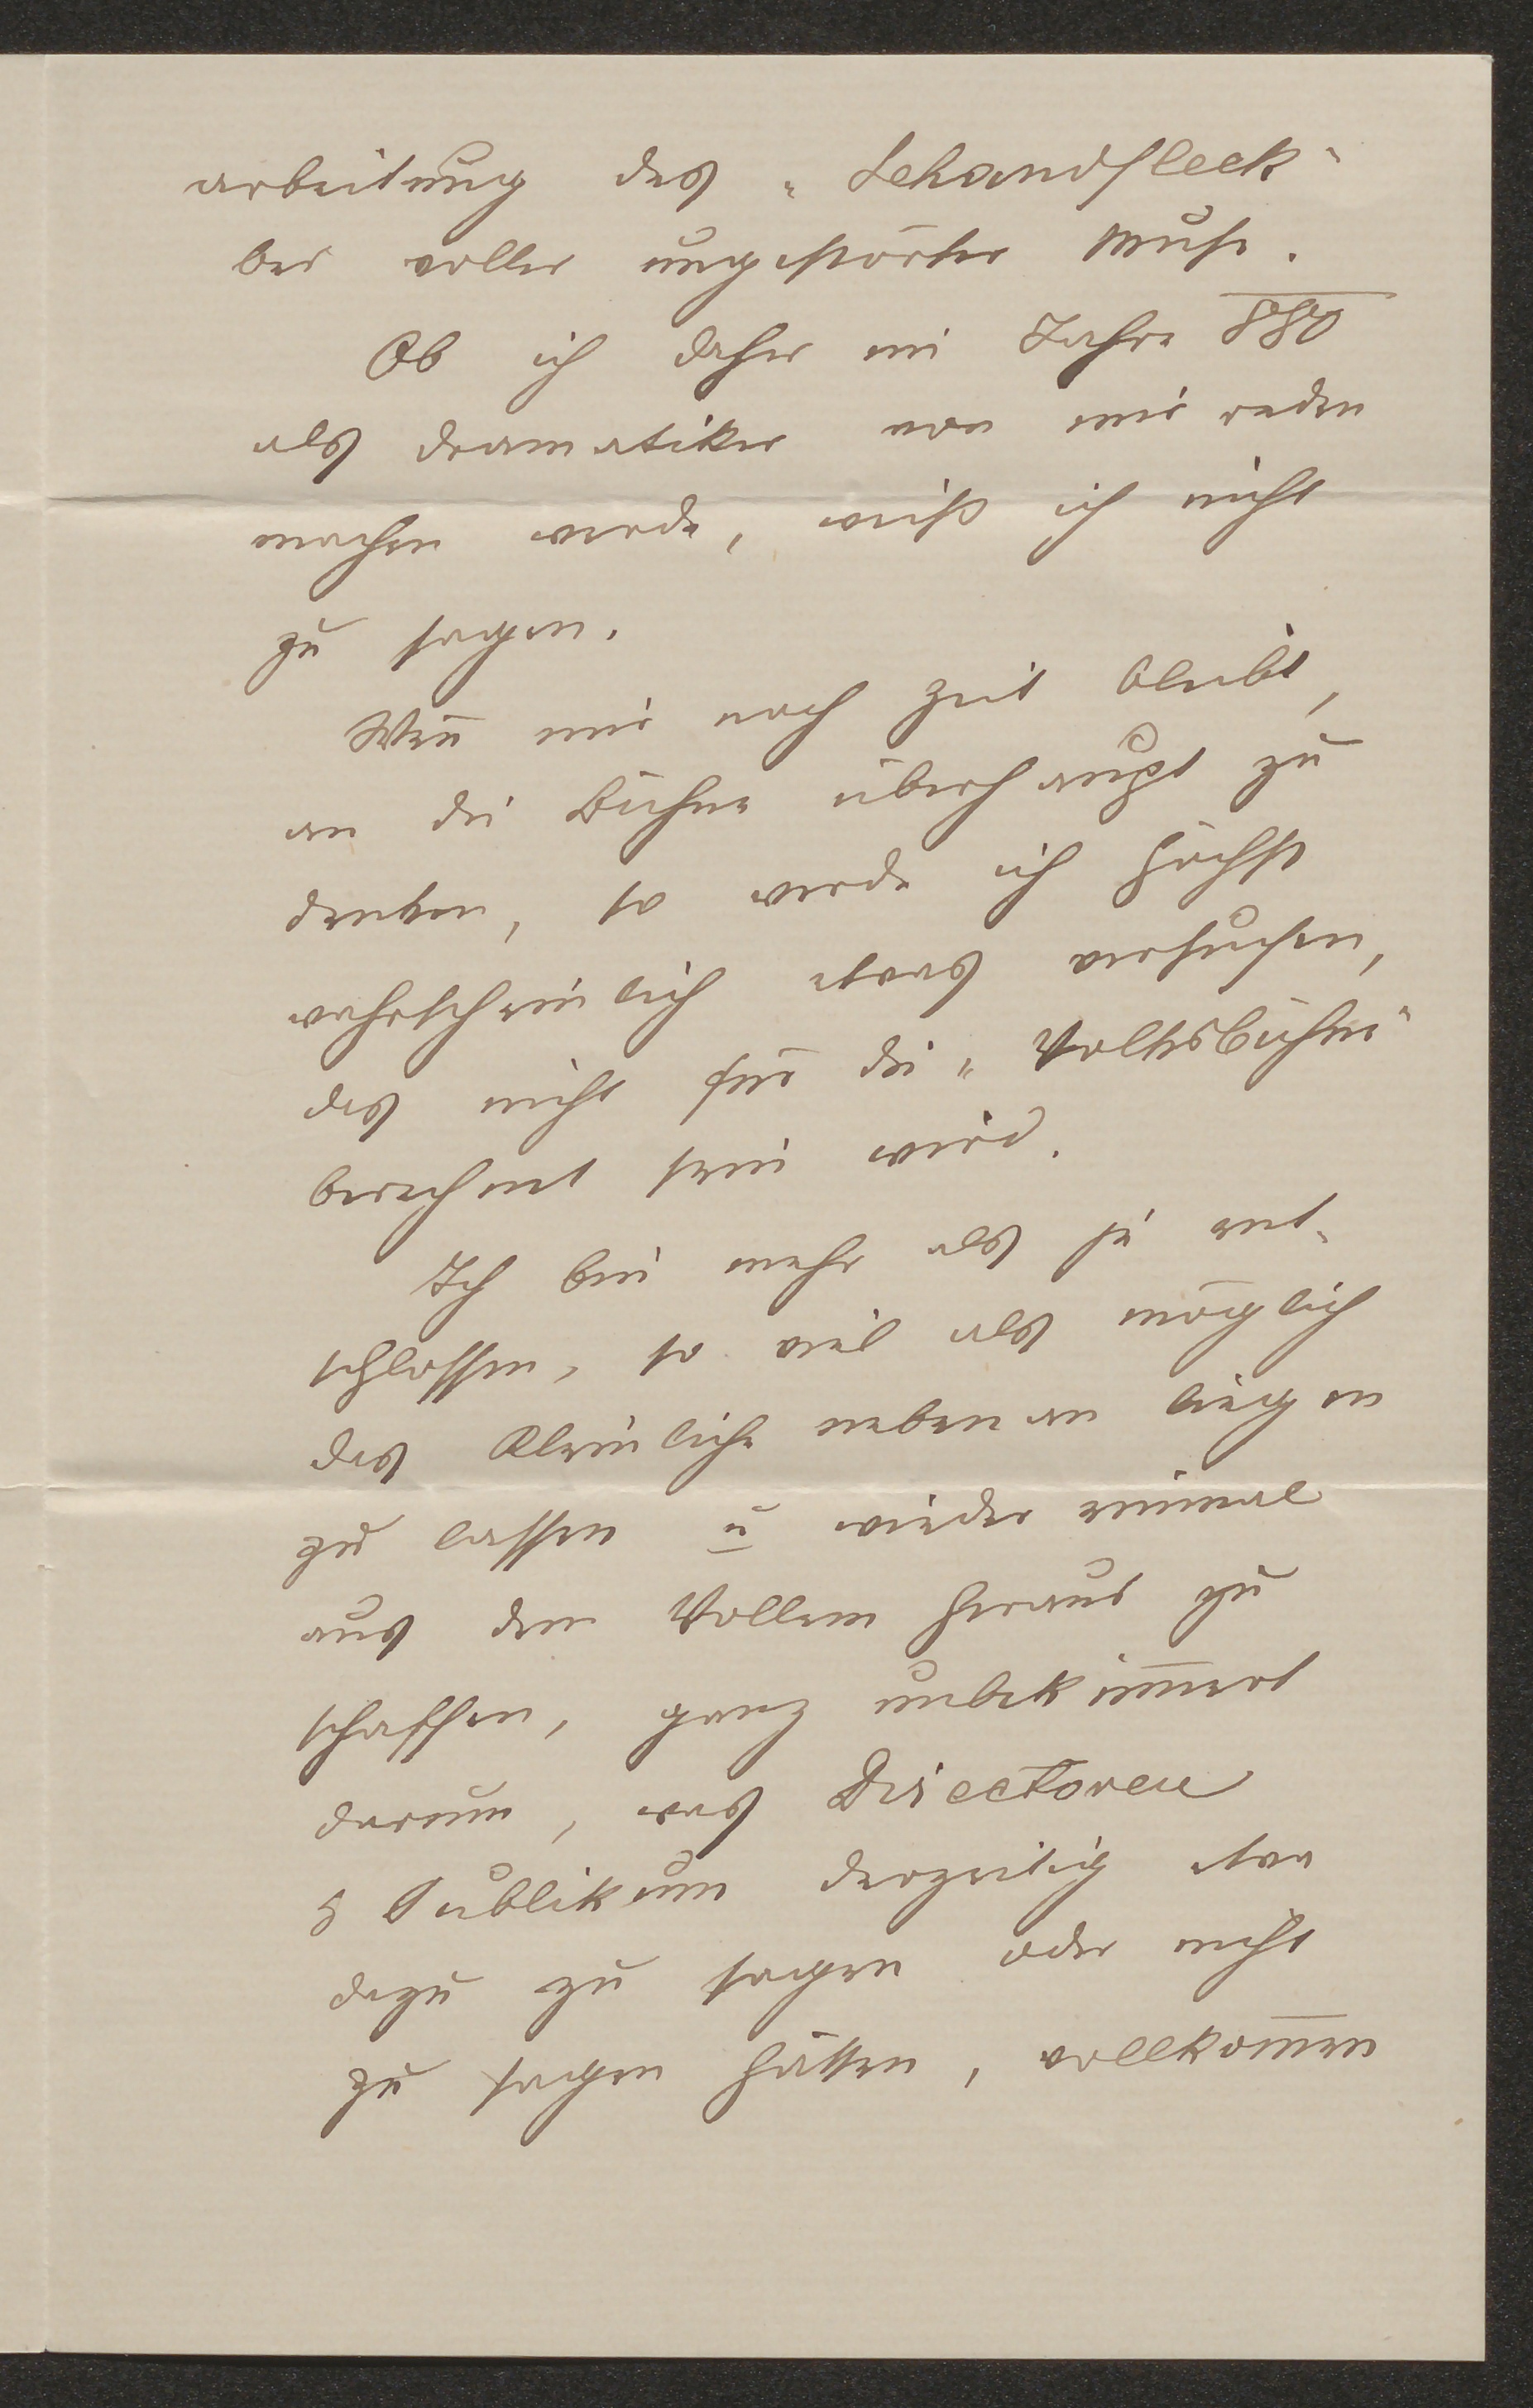 arbeitung des „Schandfleck“
bei voller ungestörter Muße.
Ob ich daher im Jahre 880
als Dramatiker von mir reden
machen werde, weiß ich nicht
zu sagen.
Weñ mir noch Zeit bleibt,
an die Bühne überhaupt zu
denken, so werde ich höchst
wahrscheinlich etwas versuchen,
das nicht für die „Volksbühne“
berechnet sein wird.
Ich bin mehr als je ent-
schlossen, so viel als möglich
das Kleinliche nebenan liegen
zu lassen u wieder einmal
aus dem Vollem heraus zu
schaffen, ganz unbeküm̄ert
darum, was Directoren
& Publikum derzeitig etwa
dazu zu sagen oder nicht
zu sagen hätten, vollkom̄en